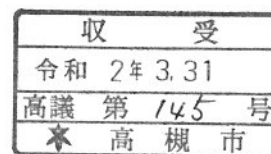 収 受
令和 2年 3.31
高議 第 145 号
高 槻 市